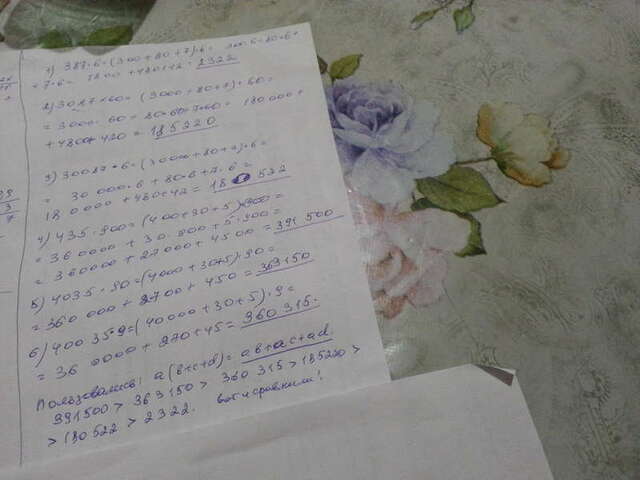 1) 387·6=(300+80+7)·6= 300·6+80·6+
+7·6= 1800+480+42=2322
2) 3087·60=(3000+80+7)·60=
=3000·60+80·60+7·60= 180000+
+4800+420=185220
3) 30087·6=(30000+80+7)·6=
= 30 000·6+80·6+7·6=
180000+480+42=180 522
4) 435·900=(400+30+5)·900=
=360000+30·900+5·900=
=360000+27000+4500=391 500
5) 4035·90=(4000+30+5)·90=
=360 000+2700+450=363150
6) 400 35·9=(40000+30+5)·9=
=36 0000+270+45=360 315.
Пользовались: a(b+c+d)=ab+ac+ad.
391500>363150>360 315>185220>
>180522>2322. вот и сравнили!